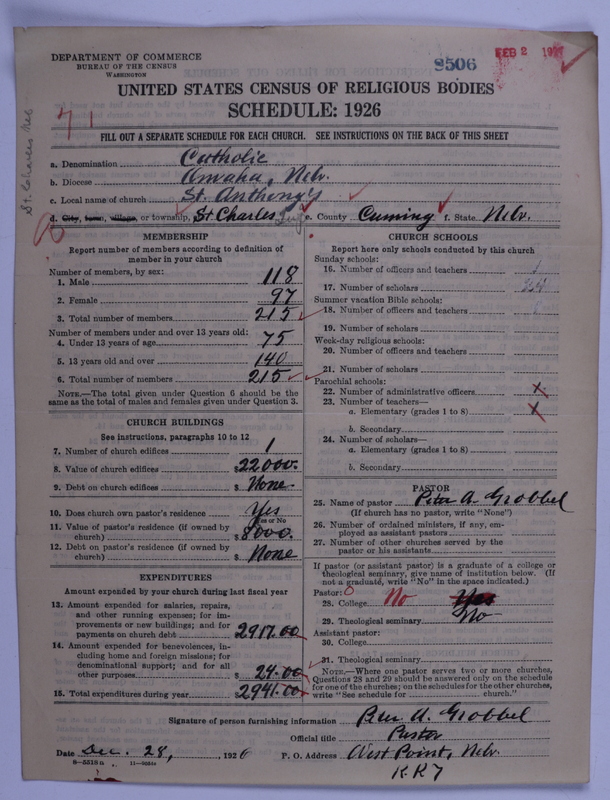 DEPARTMENT OF COMMERCE
BUREAU OF THE CENSUS
WASHINGTON
8506
FEB 2 1927
UNITED STATES CENSUS OF RELIGIOUS BODIES
SCHEDULE: 1926
71
St. Charles Neb
FILL OUT A SEPARATE SCHEDULE FOR EACH CHURCH. SEE INSTRUCTIONS ON THE BACK OF THIS SHEET
a. Denomination Catholic
b. Diocese Omaha, Nebr.
c. Local name of church St. Anthony's
d. City, town, village, or township, St Charles e. County Cuming f. State Nebr.
MEMBERSHIP
Report number of members according to definition of
member in your church
Number of members, by sex:
1. Male 118
2. Female 97
3. Total number of members 215
Number of members under and over 13 years old:
4. Under 13 years of age 75
5. 13 years old and over 140
6. Total number of members 215
NOTE.—The total given under Question 6 should be the
same as the total of males and females given under Question 3.
CHURCH BUILDINGS
See instructions, paragraphs 10 to 12
7. Number of church edifices 1
8. Value of church edifices $22000.
9. Debt on church edifices $ None
10. Does church own pastor's residence Yes
Yes or No
11. Value of pastor's residence (if owned by
church) $8000.
12. Debt on pastor's residence (if owned by
church) $ None
EXPENDITURES
Amount expended by your church during last fiscal year
13. Amount expended for salaries, repairs,
and other running expenses; for im-
provements or new buildings; and for
payments on church debt $2917.00
14. Amount expended for benevolences, in-
cluding home and foreign missions; for
denominational support; and for all
other purposes $ 24.00
15. Total expenditures during year $2941.00
CHURCH SCHOOLS
Report here only schools conducted by this church
Sunday schools:
16. Number of officers and teachers
17. Number of scholars
Summer vacation Bible schools:
18. Number of officers and teachers
19. Number of scholars
Week-day religious schools:
20. Number of officers and teachers
21. Number of scholars
Parochial schools:
22. Number of administrative officers
23. Number of teachers—
a. Elementary (grades 1 to 8)
b. Secondary
24. Number of scholars—
a. Elementary (grades 1 to 8)
b. Secondary
PASTOR
25. Name of pastor Peter A. Grobbel
(If church has no pastor, write "None")
26. Number of ordained ministers, if any, em-
ployed as assistant pastors
27. Number of other churches served by the
pastor or his assistants
If pastor (or assistant pastor) is a graduate of a college or
theological seminary, give name of institution below. (If
not a graduate, write "No" in the space indicated.)
Pastor:
28. College No
29. Theological seminary No
Assistant pastor:
30. College
31. Theological seminary
NOTE.—Where one pastor serves two or more churches,
Questions 28 and 29 should be answered only on the schedule
for one of the churches; on the schedules for the other churches,
write "See schedule for church."
Signature of person furnishing information Peter A. Grobbel
Official title Pastor
Date Dec. 28, 1926 P. O. Address West Point, Nebr.
8—5518a 11—9024